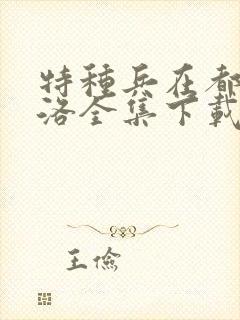 特種兵在都
洛全集下載
王儉